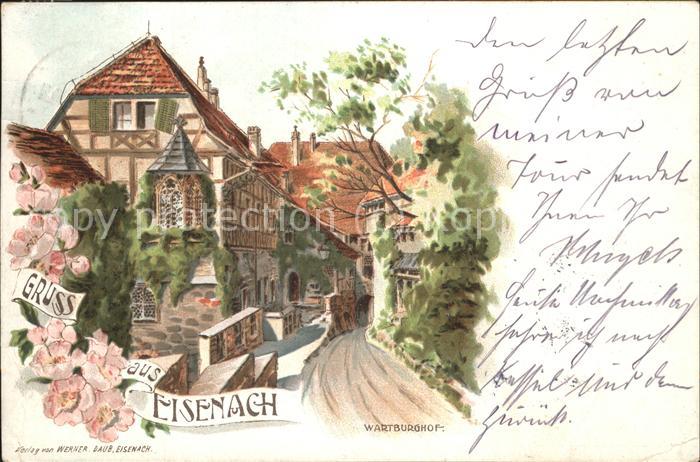 GRUSS
aus
EISENACH
WARTBURGHOF.
Verlag von WERNER DAUB, EISENACH.
den letzten
Gruß von
meiner
Tour sendet
Ihnen Ihr
Heute Nachmittag
fahre ich nach
und dann
zurück.
copy protection